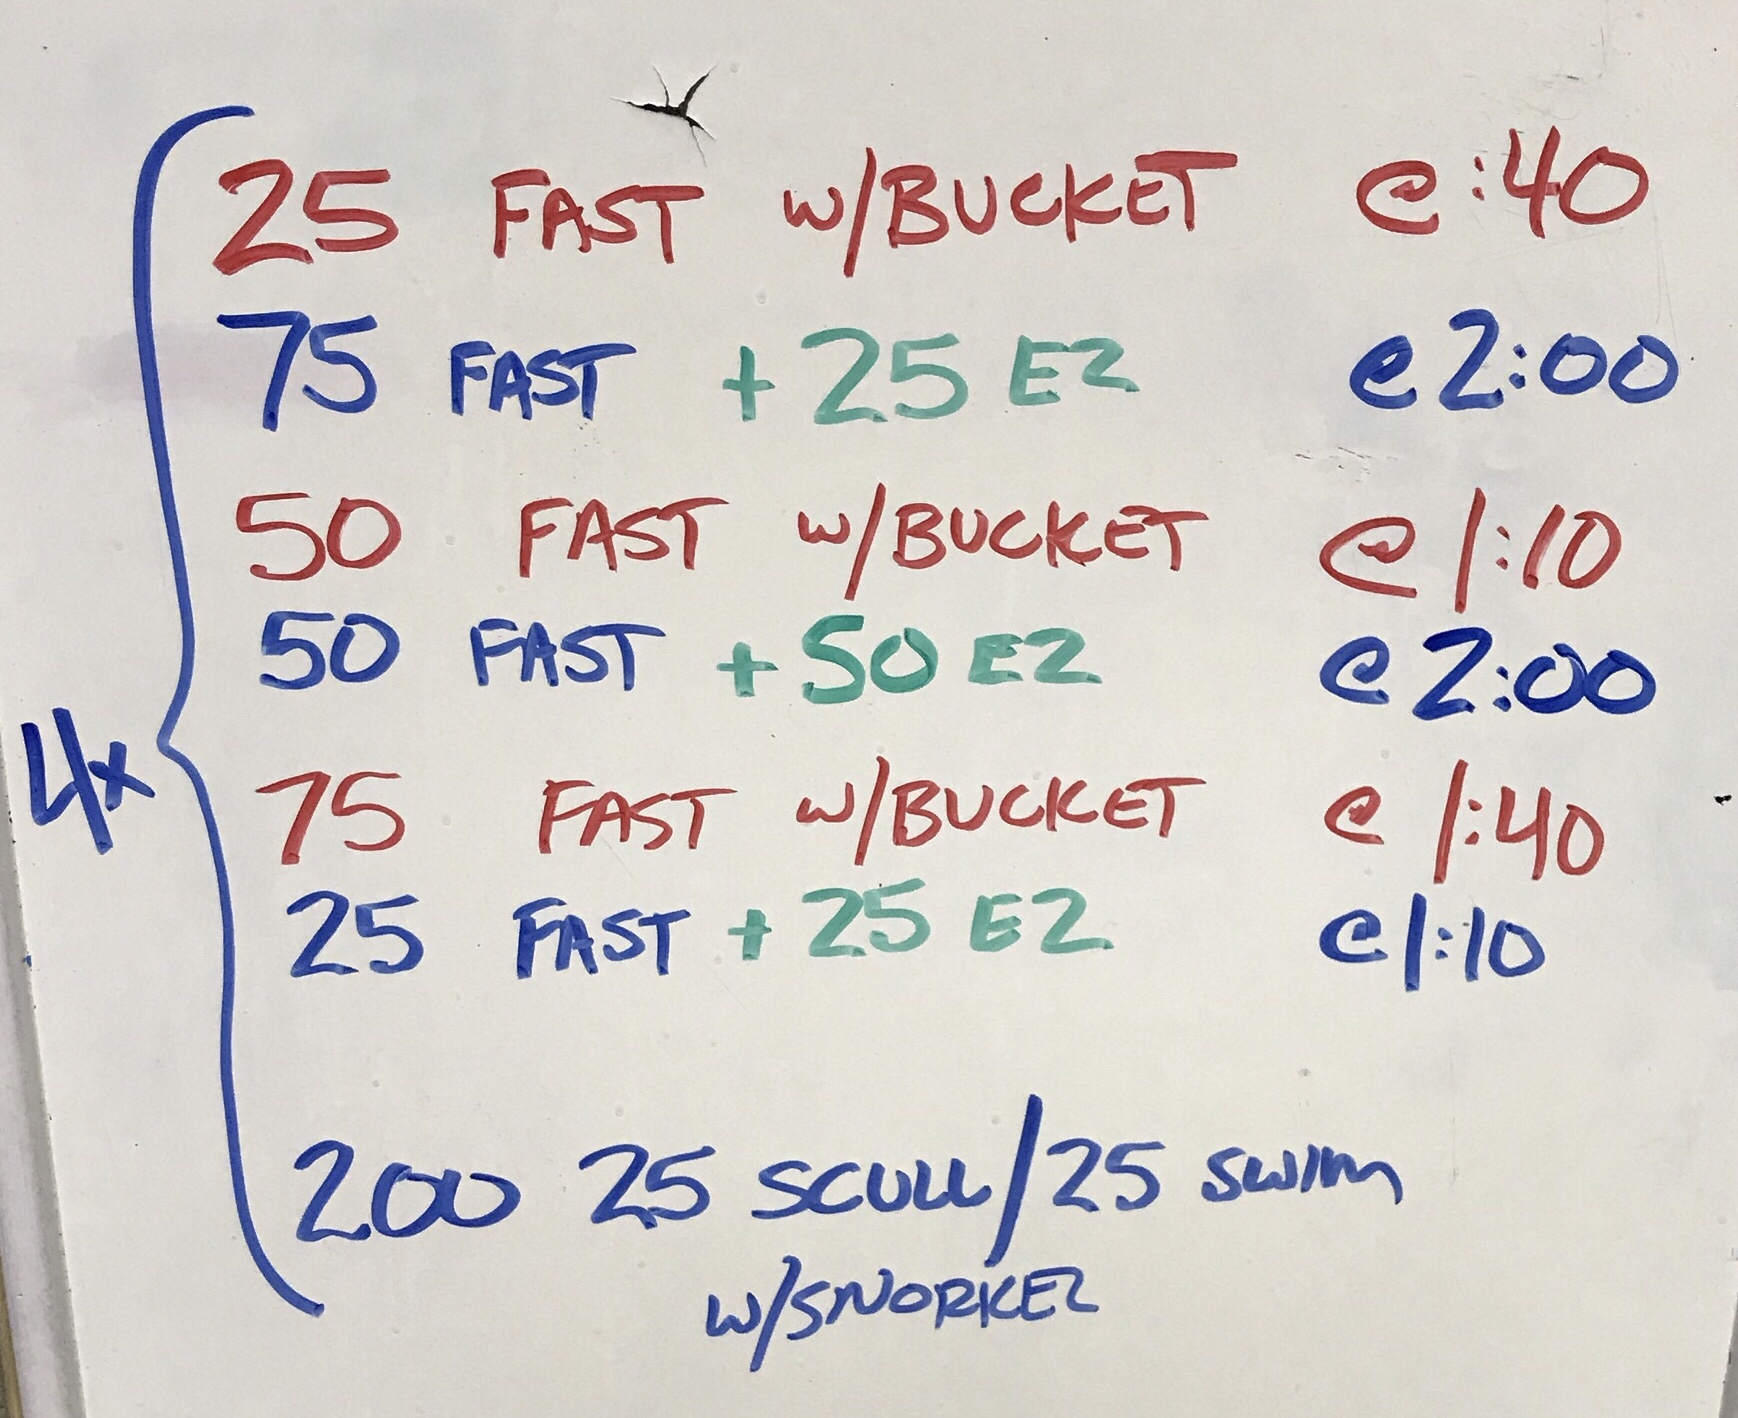 25 FAST w/BUCKET @ :40
75 FAST + 25 EZ @ 2:00
50 FAST w/BUCKET @ 1:10
50 FAST + 50 EZ @ 2:00
4x
75 FAST w/BUCKET @ 1:40
25 FAST + 25 EZ @ 1:10
200 25 SCULL/25 SWIM
w/SNORKEL